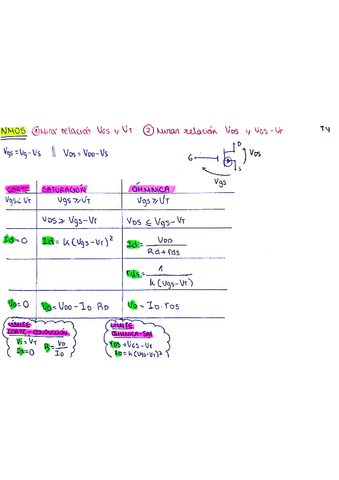 NMOS ① Mirar relación VGS y VT ② Mirar relación VDS y VGS-VT T4
Vgs = Vg - Vs || VDS = VDD - VS
G D S VDS Vgs
CORTE SATURACIÓN ÓHMNICA
Vgs ≤ VT Vgs ≥ VT Vgs ≥ VT
VDS ≥ Vgs - VT VDS ≤ Vgs - VT
Id = 0 Id = k(Vgs-VT)² Id = VDD / Rd + rds
rds = 1 / k(Vgs-VT)
Vo = 0 Vo = VDD - ID · RD Vo = ID · rDS
LÍMITE CORTE - CONDUCCIÓN
Vi = VT
ID = 0
R = VD / ID
LÍMITE ÓHMNICA-SAT
VDS = VGS - VT
ID = k(Vgs-VT)²